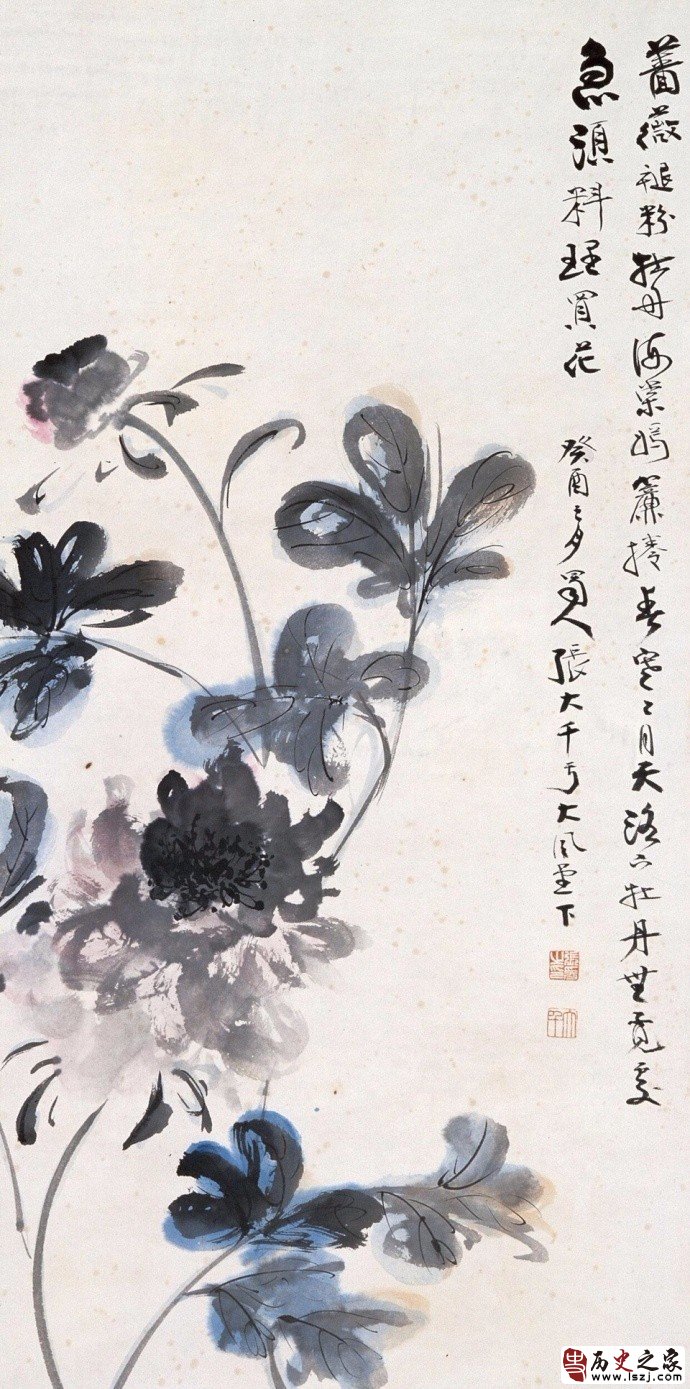 薔薇褪粉牡丹海棠嫣簾捲春寒二月天洛下牡丹無覓處
急須料理買花
癸酉 蜀人張大千于大風堂下
張爰之印
大千
史
历史之家
www.lszj.com